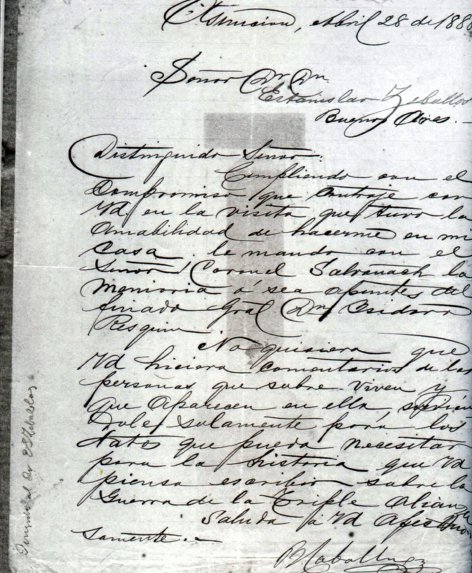 Asuncion, Abril 28 de 188
Señor Dr Dn
Estanislao Zeballos
Buenos Aires.-
Distinguido Señor:
Cumpliendo con el
Compromiso que contraje con
Vd en la visita que tuvo la
amabilidad de hacerme en mi
casa, le mando con el
Señor Coronel la
Memoria ó sea apuntes del
finado Gral Dn Isidoro
Resquin
No quisiera que
Vd hiciera comentarios de las
personas que sobre viven y
que aparecen en ella,
solamente para los
datos que pueda necesitar
para la historia que Vd
piensa escribir sobre la
Guerra de la Triple Alianza
Saluda a Vd Afectuo
samente.-
BCaballero